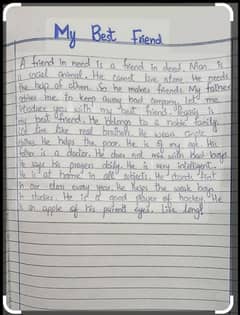 My Best Friend
A friend in need is a friend in deed. Man is
a social animal. He cannot live alone. He needs
the help of others. So he makes friends. My father
me to keep away bad company. let me
you with my best friend.
my best friend. He belongs to a noble family.
We live like real brothers. He wears simple
clothes. He helps the poor. He is of my age. His
father is a doctor. He does not mix with bad boys.
He says his prayers daily. He is very intelligent.
He is at home in all subjects. He stands first
in our class every year. He helps the weak boys
in studies. He is a good player of hockey. He
is an apple of his parents eyes. Live long!